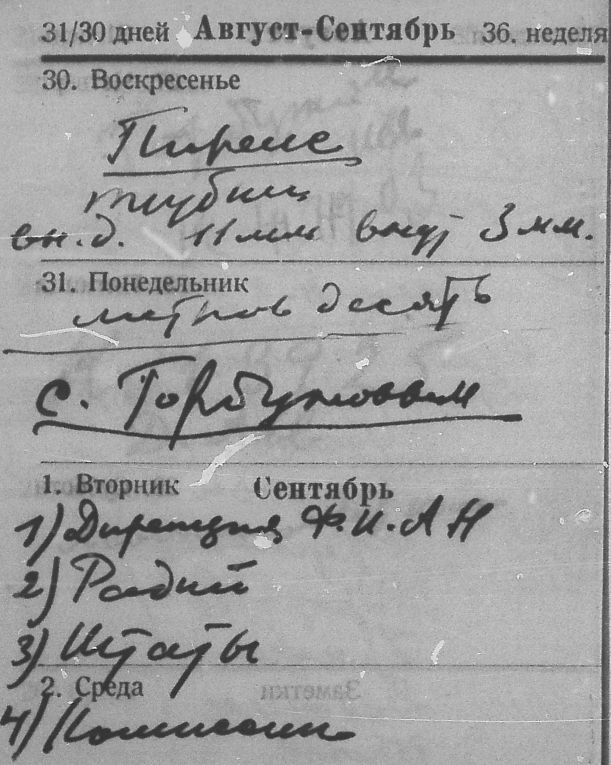 31/30 дней Август-Сентябрь 36. неделя
30. Воскресенье
Пирекс
трубки
вн.д. 11 мм внут 3 мм.
31. Понедельник
метров десять
с. Горбуновым
1. Вторник Сентябрь
1) Дирекция Ф.И.А Н
2) Радий
3) Штаты
2. Среда
Заметки
4) Комиссии